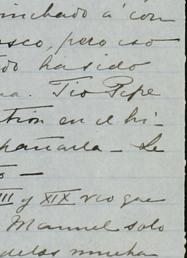 inchado á con
osco, pero iso
do hasido
a. Tio Pepe
tion en el hi-
pañarla - Le
o -
III y XIX veo que
Manuel solo
delas mucha